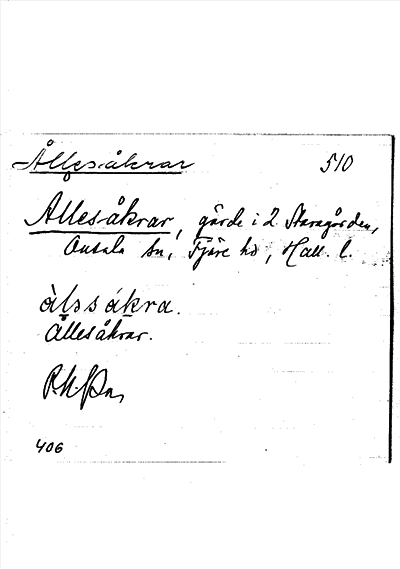 Ållesåkrar 510
Allesåkrar, gärde i 2 Staragården,
Onsala sn, Fjäre hd, Hall. l.
àl̥s s ák̥ra.
Ållesåkrar.
406